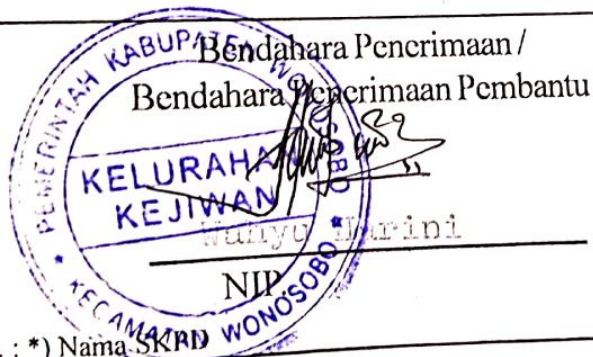 Bendahara Penerimaan /
Bendahara Penerimaan Pembantu
PEMERINTAH KABUPATEN WONOSOBO
KELURAHAN
KEJIWAN
* KECAMATAN WONOSOBO *
Wahyu Harini
NIP.
: *) Nama SKPD